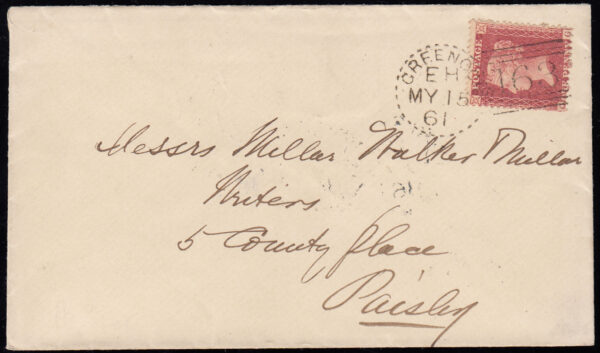 GREENO
EH
MY 15
61
163
POSTAGE
Messrs Millar Walker & Millar
Writers
5 County place
Paisley